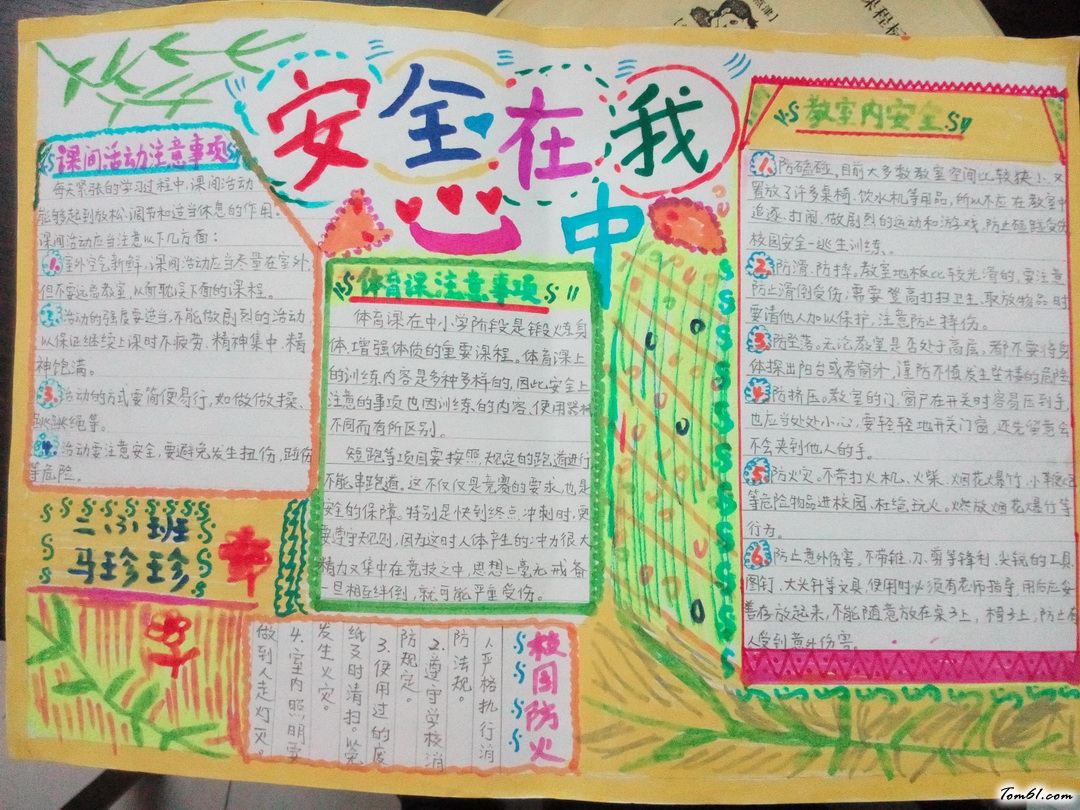 安全在我
心中
课间活动注意事项
每天紧张的学习过程中,课间活动
能够起到放松、调节和适当休息的作用。
课间活动应当注意以下几方面:
1.室外空气新鲜,课间活动应当尽量在室外,
但不要远离教室,从而耽误下面的课程。
2.活动的强度要适当,不能做剧烈的活动,
以保证继续上课时不疲劳、精神集中、精
神饱满。
3.活动的方式要简便易行,如做做操、
跳跳绳等。
4.活动要注意安全,要避免发生扭伤,
等危险。
二、班
马珍珍
体育课注意事项
体育课在中小学阶段是锻炼身
体、增强体质的重要课程。体育课上
的训练内容是多种多样的,因此安全上
注意的事项也因训练的内容、使用器械
不同而有所区别。
短跑等项目要按照规定的跑道进行
不能串跑道。这不仅仅是竞赛的要求,也是
安全的保障。特别是快到终点冲刺时,更
要遵守规则,因为这时人体产生的冲力很大
精力又集中在竞技之中,思想上毫无戒备
一旦相互绊倒,就可能严重受伤。
校园防火
1.严格执行消
防法规。
2.遵守学校消
防规定。
3.使用过的废
纸及时清扫。以免
发生火灾。
4.室内照明要
做到人走灯灭。
教室内安全
1.防磕碰。目前大多数教室空间比较狭小,又
置放了许多桌椅、饮水机等用品,所以不应在教室中
追逐、打闹,做剧烈的运动和游戏,防止磕碰受伤
校园安全-逃生训练。
2.防滑、防摔。教室地板比较光滑的,要注意
防止滑倒受伤;需要登高打扫卫生、取放物品时
要请他人加以保护,注意防止摔伤。
3.防坠落。无论教室是否处于高层,都不要将身
体探出阳台或者窗外,谨防不慎发生坠楼的危险
4.防挤压。教室的门、窗户在开关时容易压到手,
也应当处处小心,要轻轻地开关门窗,还先留意会
不会夹到他人的手。
5.防火灾。不带打火机、火柴、烟花爆竹、小
等危险物品进校园,杜绝玩火。燃放烟花爆竹等
行为。
6.防止意外伤害。不带锥、刀、剪等锋利、尖锐的工具,
图钉、大头针等文具,使用时必须有老师指导,用后应妥
善存放起来,不能随意放在桌子上,椅子上,防止有
人受到意外伤害。
Tom61.com